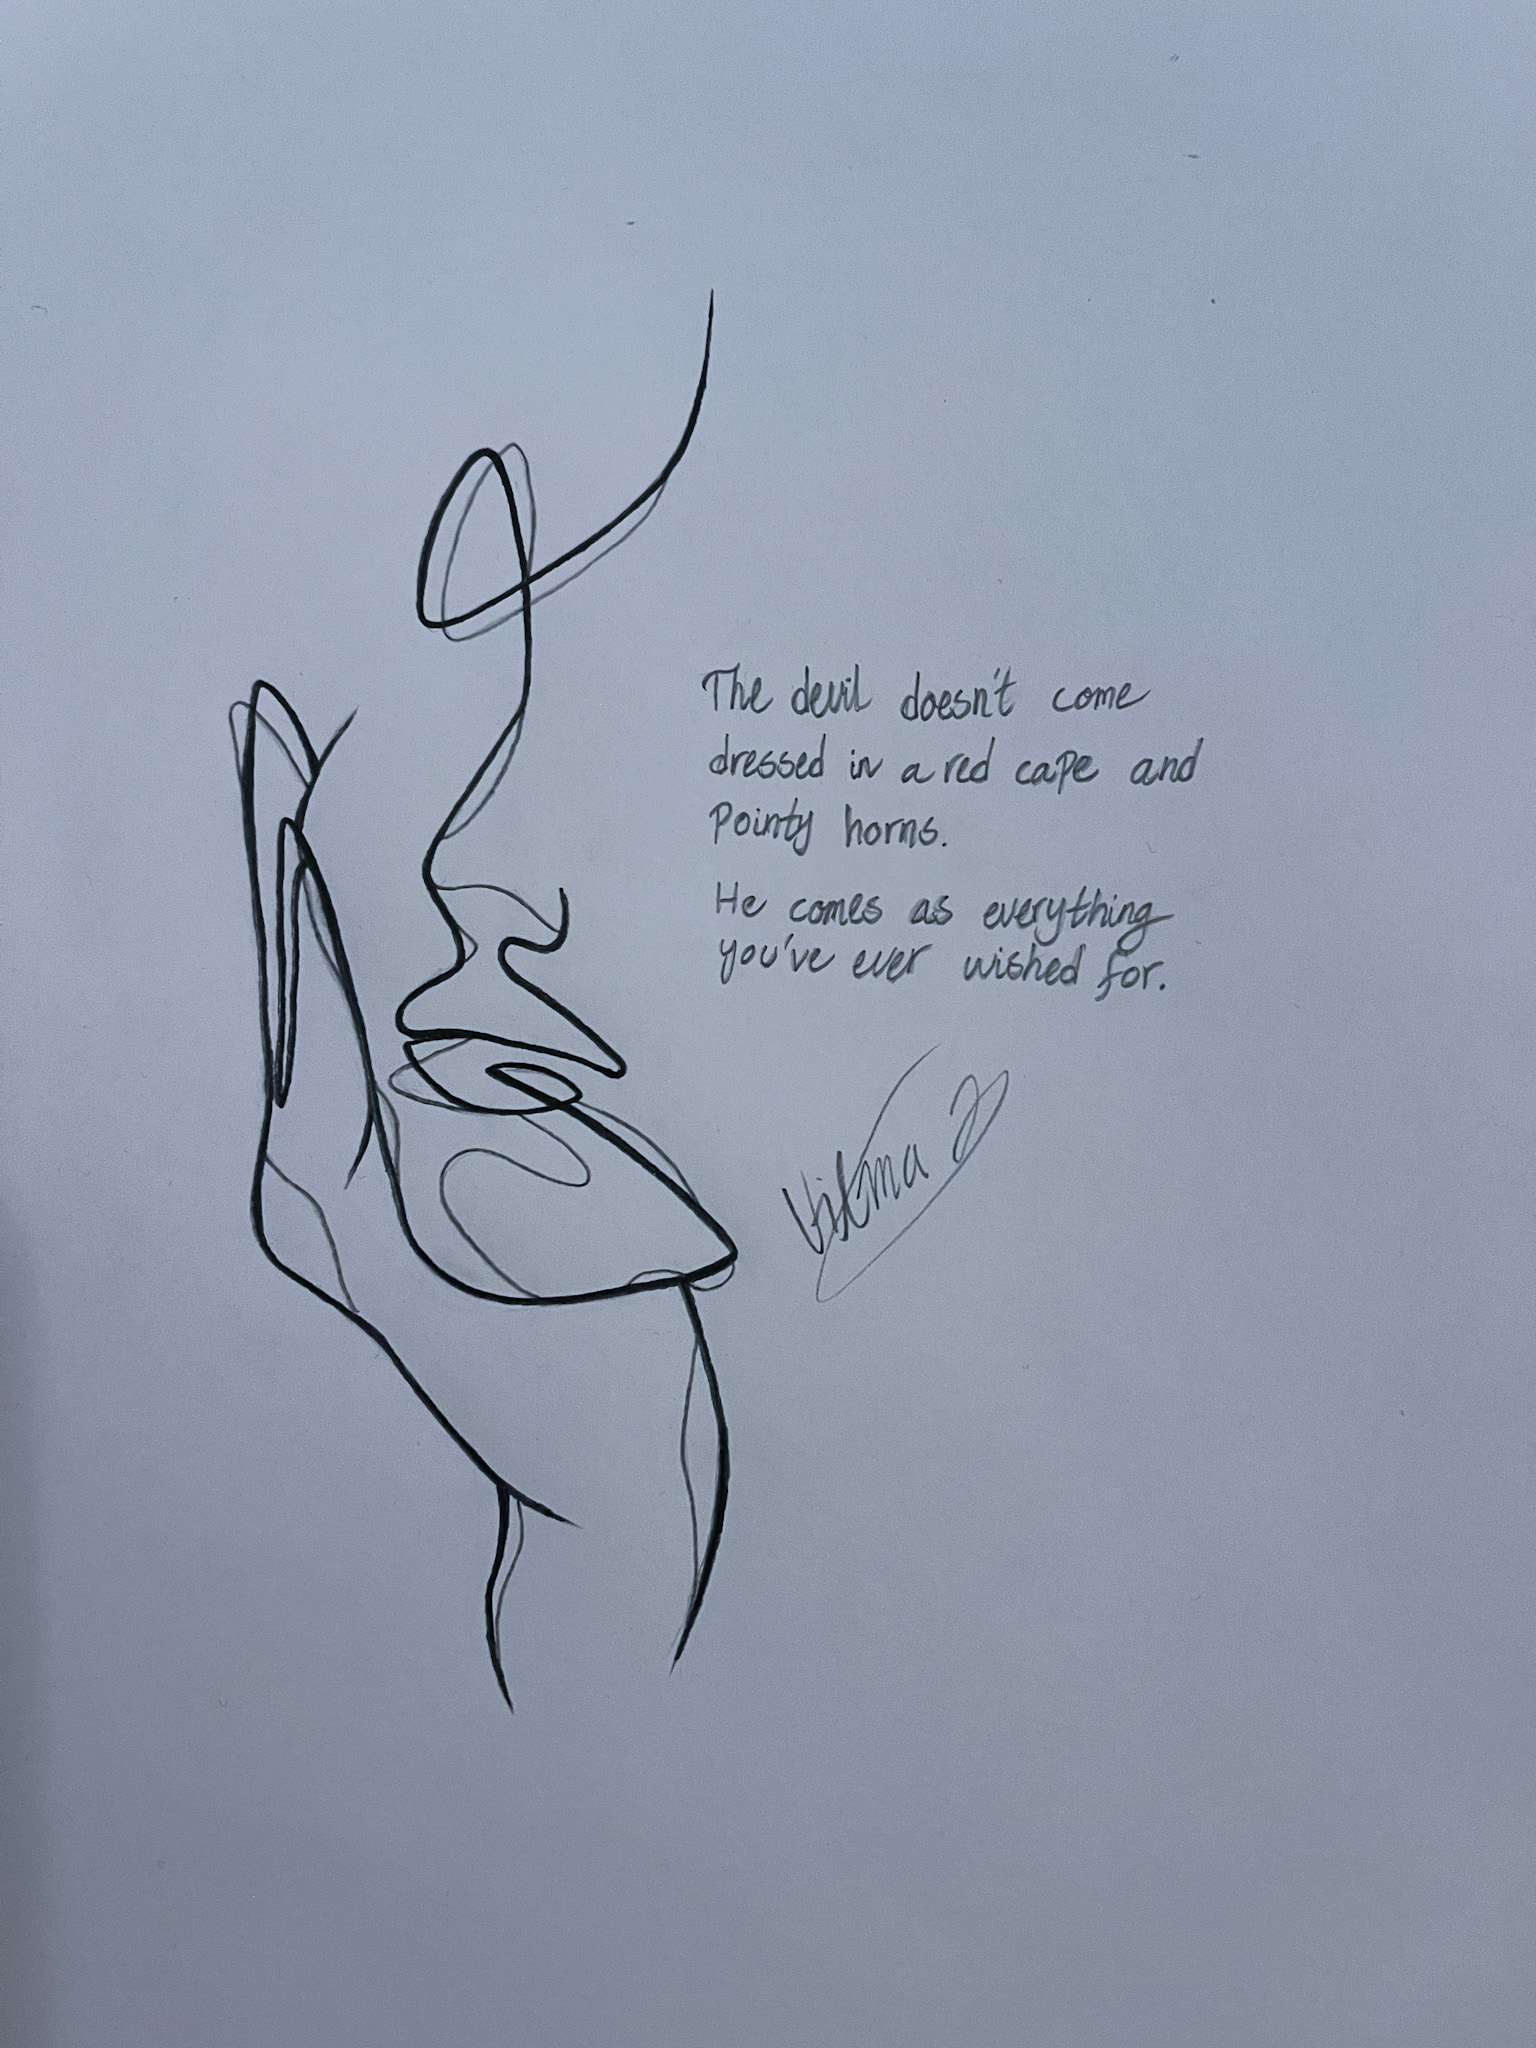 The devil doesn't come
dressed in a red cape and
Pointy horns.
He comes as everything
you've ever wished for.